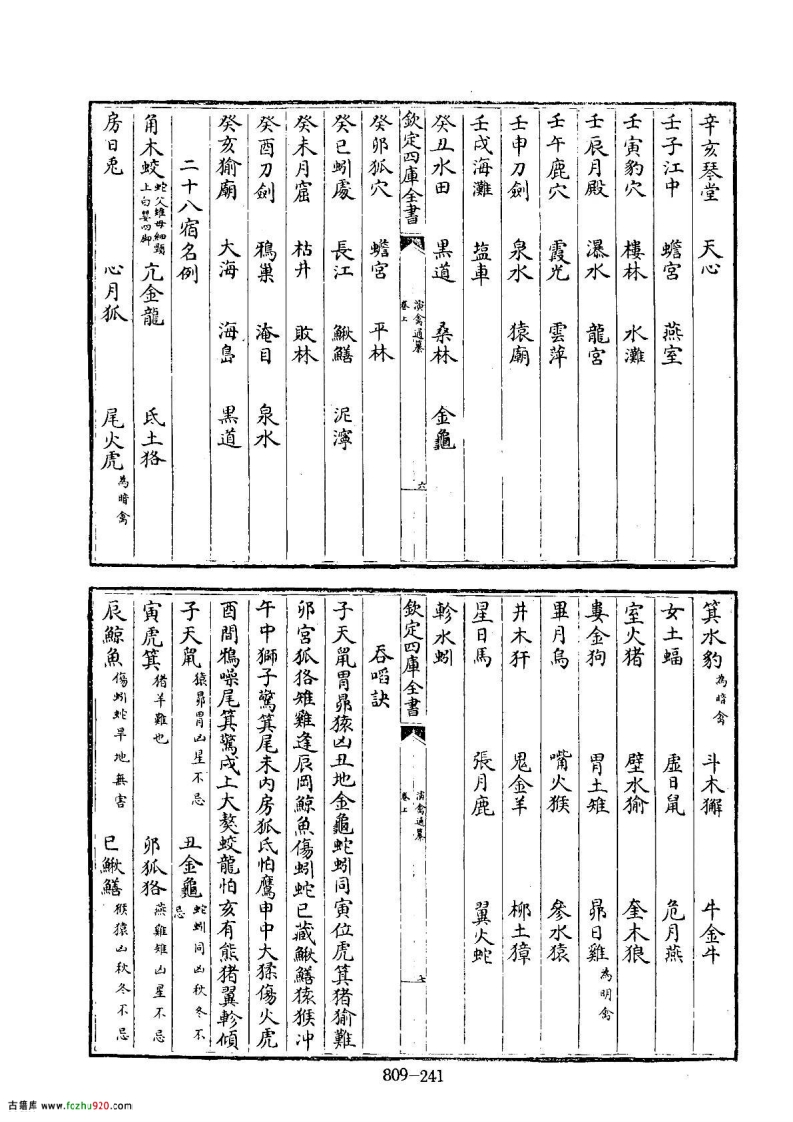 辛亥琴堂 天心
壬子江中 蟾宮 燕室
壬寅豹穴 樓林 水灘
壬辰月殿 瀑水 龍宮
壬午鹿穴 霞光 雲萍
壬申刀劍 泉水 猿廟
壬戌海灘 塩車
癸丑水田 黑道 桑林 金龜
欽定四庫全書 演禽通纂 卷上 六
癸卯狐穴 蟾宮 平林
癸巳蚓處 長江 鰍鱔 泥濘
癸未月窟 枯井 敗林
癸酉刀劍 鴉巢 淹目 泉水
癸亥㺄廟 大海 海島 黑道
二十八宿名例
角木蛟 蛇父雉母細頸上白嬰四脚 亢金龍 氐土狢
房日兎 心月狐 尾火虎 為暗禽
箕水豹 為暗禽 斗木獬 牛金牛
女土蝠 虛日鼠 危月燕
室火猪 壁水㺄 奎木狼
婁金狗 胃土雉 昴日雞 為明禽
畢月烏 嘴火猴 參水猿
井木犴 鬼金羊 柳土獐
星日馬 張月鹿 翼火蛇
軫水蚓
欽定四庫全書 演禽通纂 卷上 七
吞啗訣
子天鼠胃昴猿凶丑地金龜蛇蚓同寅位虎箕猪㺄難
卯宮狐狢雉雞逢辰岡鯨魚傷蚓蛇巳藏鰍鱔猿猴冲
午中獅子驚箕尾未內房狐氐怕鷹申中大猱傷火虎
酉間鴉噪尾箕驚戌上大獒蛟龍怕亥有熊猪翼軫傾
子天鼠 猿昴胃凶星不忌 丑金龜 蛇蚓同凶秋冬不忌
寅虎箕 猪羊難也 卯狐狢 燕雞雉凶星不忌
辰鯨魚 傷蚓蛇旱地無害 巳鰍鱔 猴猿凶秋冬不忌
809-241
古籍库 www.fczhu920.com